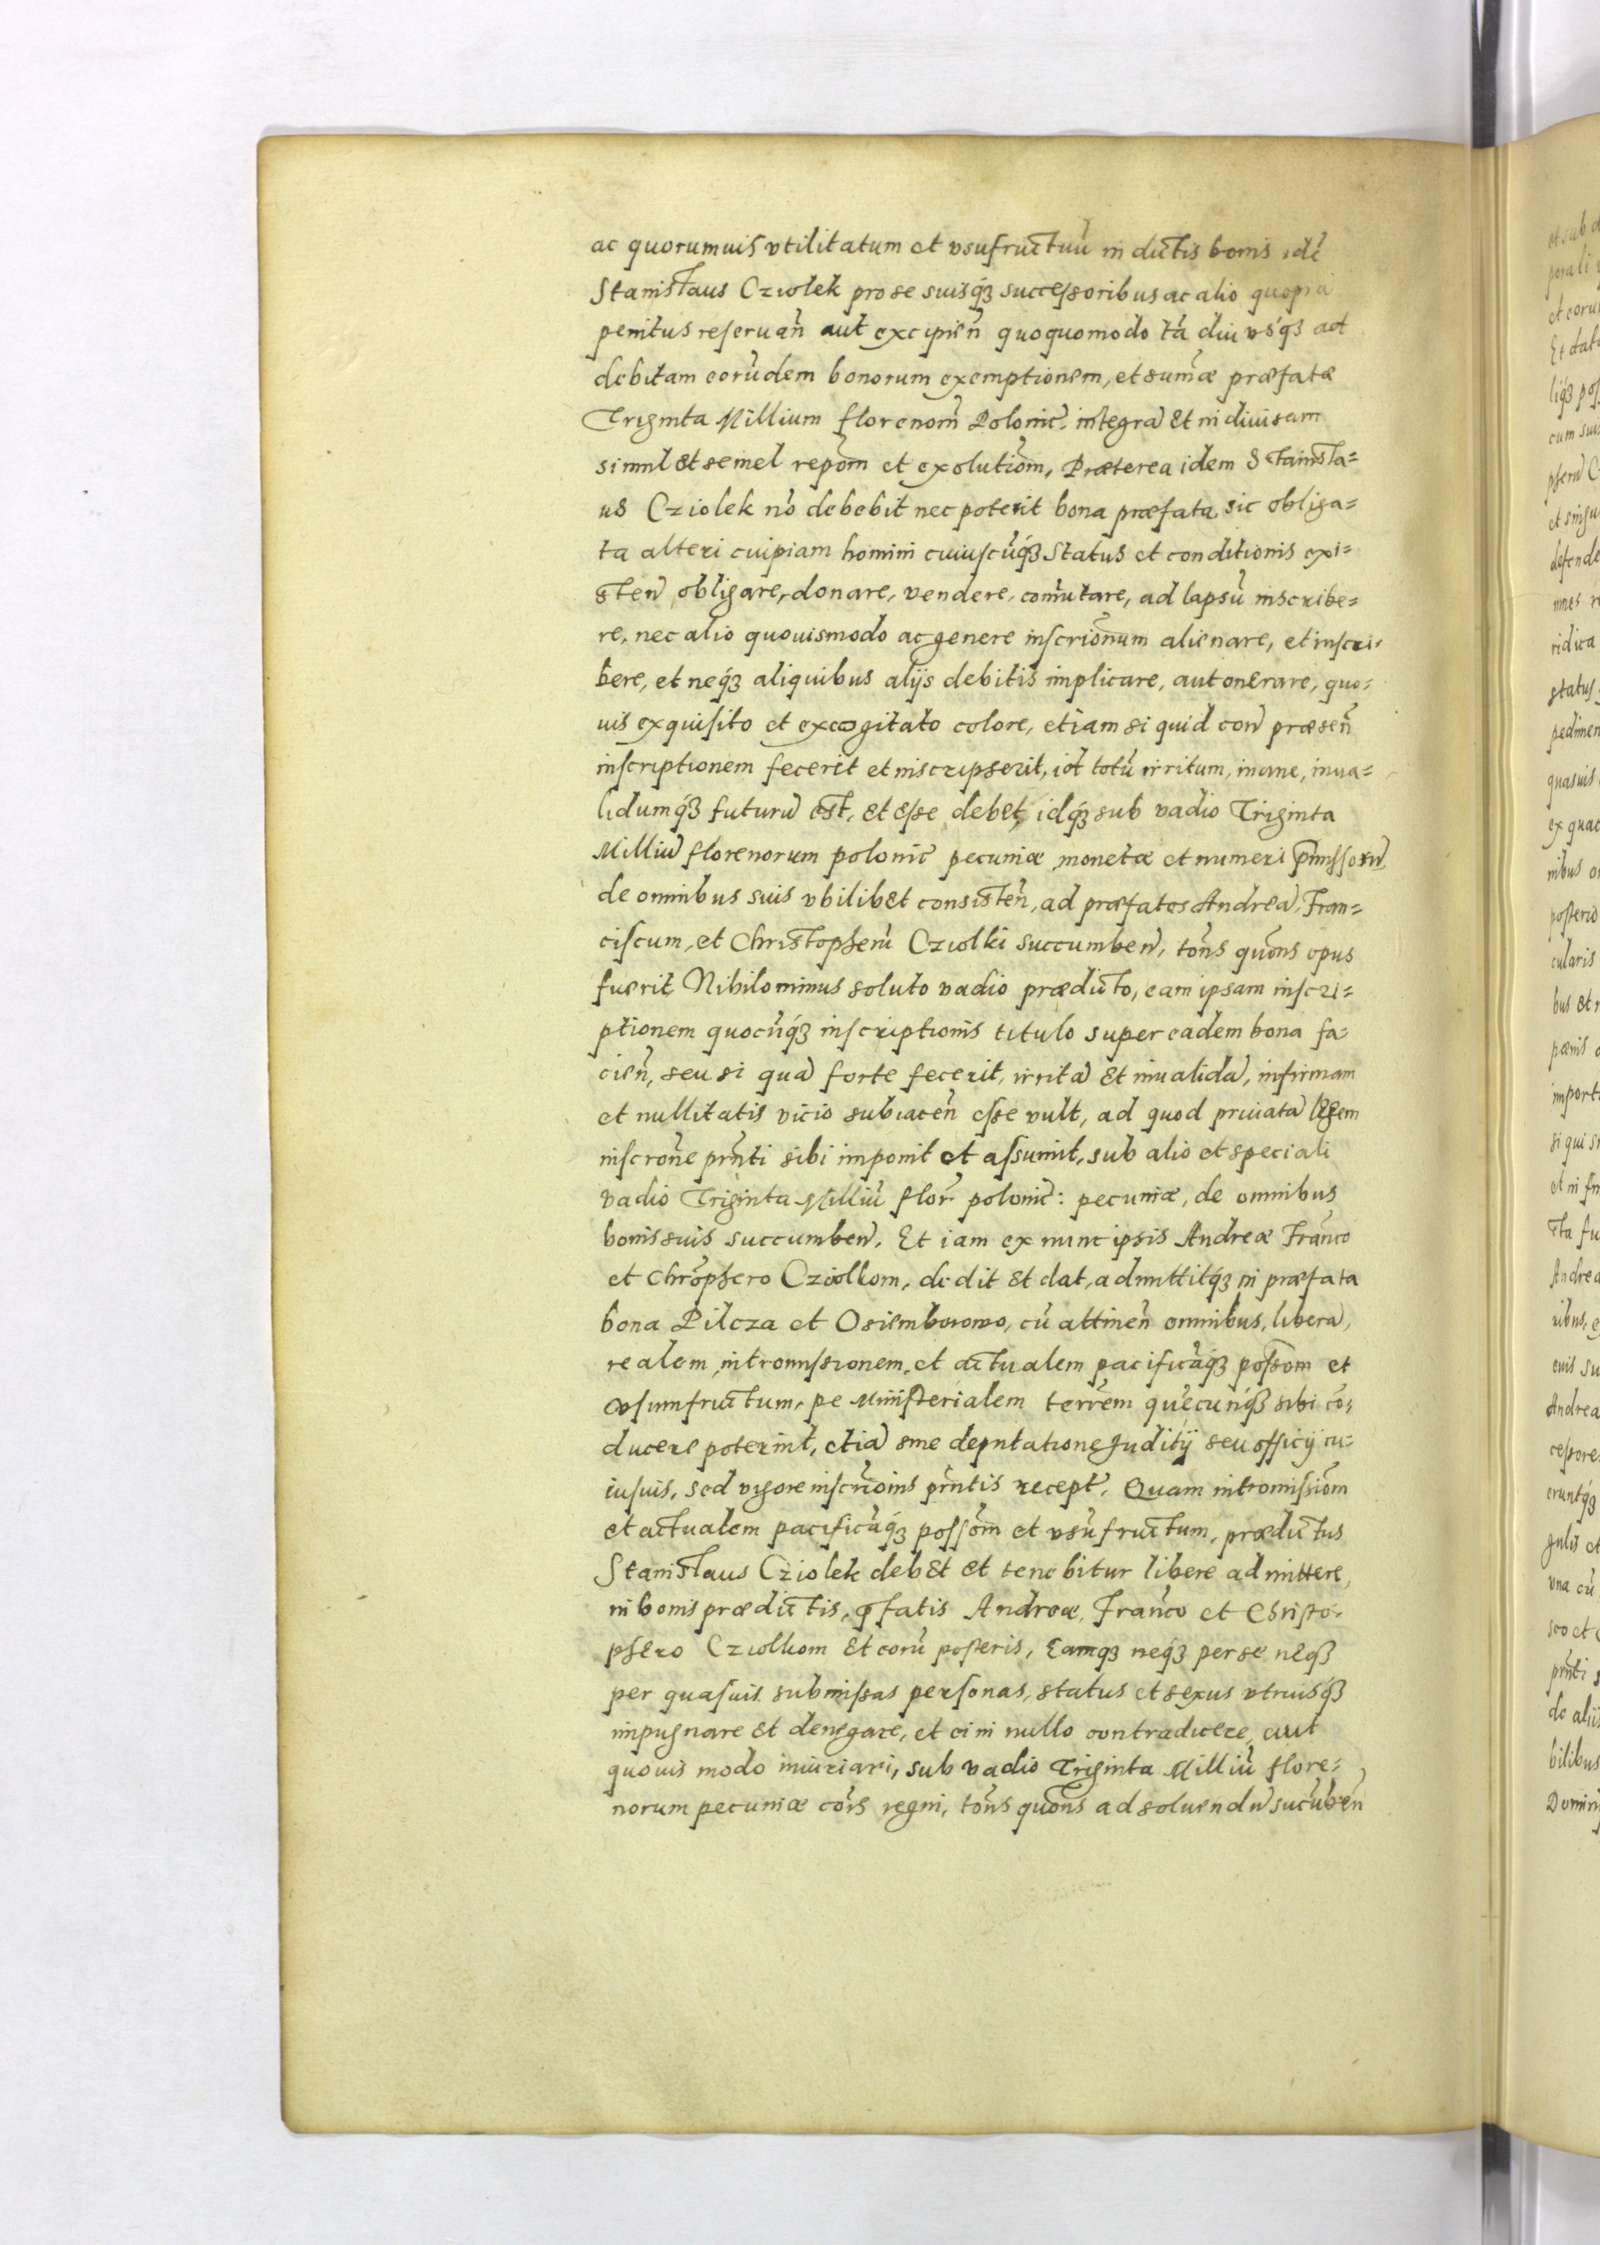 ac quorumuis vtilitatum et vsufructuū in dictis bonis idē
Stanislaus Cziolek pro se suisq́ȝ successoribus ac alio quopiā
penitus reseruan̄ aut excipien̄ quoquomodo tā diu vsq́ȝ ad
debitam eorūdem bonorum exemptionem, et sum̄æ præfatæ
Triginta Millium florenom̄ Polonic̄. integrā et indiuisam
simul et semel repōm et exolutiōm, Præterea idem Stanisla=
us Cziolek nō debebit nec poterit bona præfata sic obliga=
ta alteri cuipiam homini cuiuscūq́ȝ status et conditionis exi=
sten̄ obligare, donare, vendere, com̄utare, ad lapsū inscribe=
re, nec alio quouismodo ac genere inscriōnum alienare, et inscri=
bere, et neq́ȝ aliquibus alijs debitis implicare, aut onerare, quo=
uis exquisito et excogitato colore, etiam si quid con̄ præsen̄
inscriptionem fecerit et inscripserit, id totū irritum, inane, inua=
lidumq́ȝ futurū est, et esse debet, idq́ȝ sub vadio Triginta
Milliū florenorum polonic̄ pecuniæ monetæ et numeri p̄missorū
de omnibus suis vbilibet consisten̄, ad præfatos Andreā, Fran=
ciscum, et Christopherū Cziolki succumben̄, tōns quōns opus
fuerit, Nihilominus soluto vadio prædicto, eam ipsam inscri=
ptionem quocūq́ȝ inscriptionis titulo super eadem bona fa=
cien̄, seu si quā forte fecerit, irritā et inualidā, infirmam
et nullitatis vicio subiacen̄ esse vult, ad quod priuatā legem
inscrōne pr̄nti sibi imponit et assumit, sub alio et speciali
vadio Triginta Milliū flor̄ polonic̄: pecuniæ, de omnibus
bonis suis succumben̄. Et iam ex nunc ipsis Andreæ Frānco
et Chrōphero Cziolkom, dedit et dat, admittitq́ȝ in præfata
bona Pilcza et Osiemborowo, cū attinen̄ omnibus, liberā,
realem, intromissionem, et actualem pacificāq́ȝ possōm et
vsumfructum, pe Ministerialem terrēm quēcunq́ȝ sibi cō=
ducere poterint, etiā sine deputatione Juditij seu officij cu=
iusuis, sed vigore inscriōnis pr̄ntis recept̄. Quam intromissiōm
et actualem pacificāq́ȝ possōm et vsūfructum, prædictus
Stanislaus Cziolek debet et tenebitur libere admittere,
in bonis prædictis, p̄fatis Andreæ, Frānco et Christo=
phero Cziolkom et eorū posteris, Eamqȝ neq́ȝ per se neqȝ
per quasuis submissas personas, status et sexus vtriusq́ȝ
impugnare et denegare, et ei in nullo contradicere, aut
quouis modo iniuriari, sub vadio Triginta Milliū flore=
norum pecuniæ cōis regni, tōns quōns ad soluendū sucūben̄